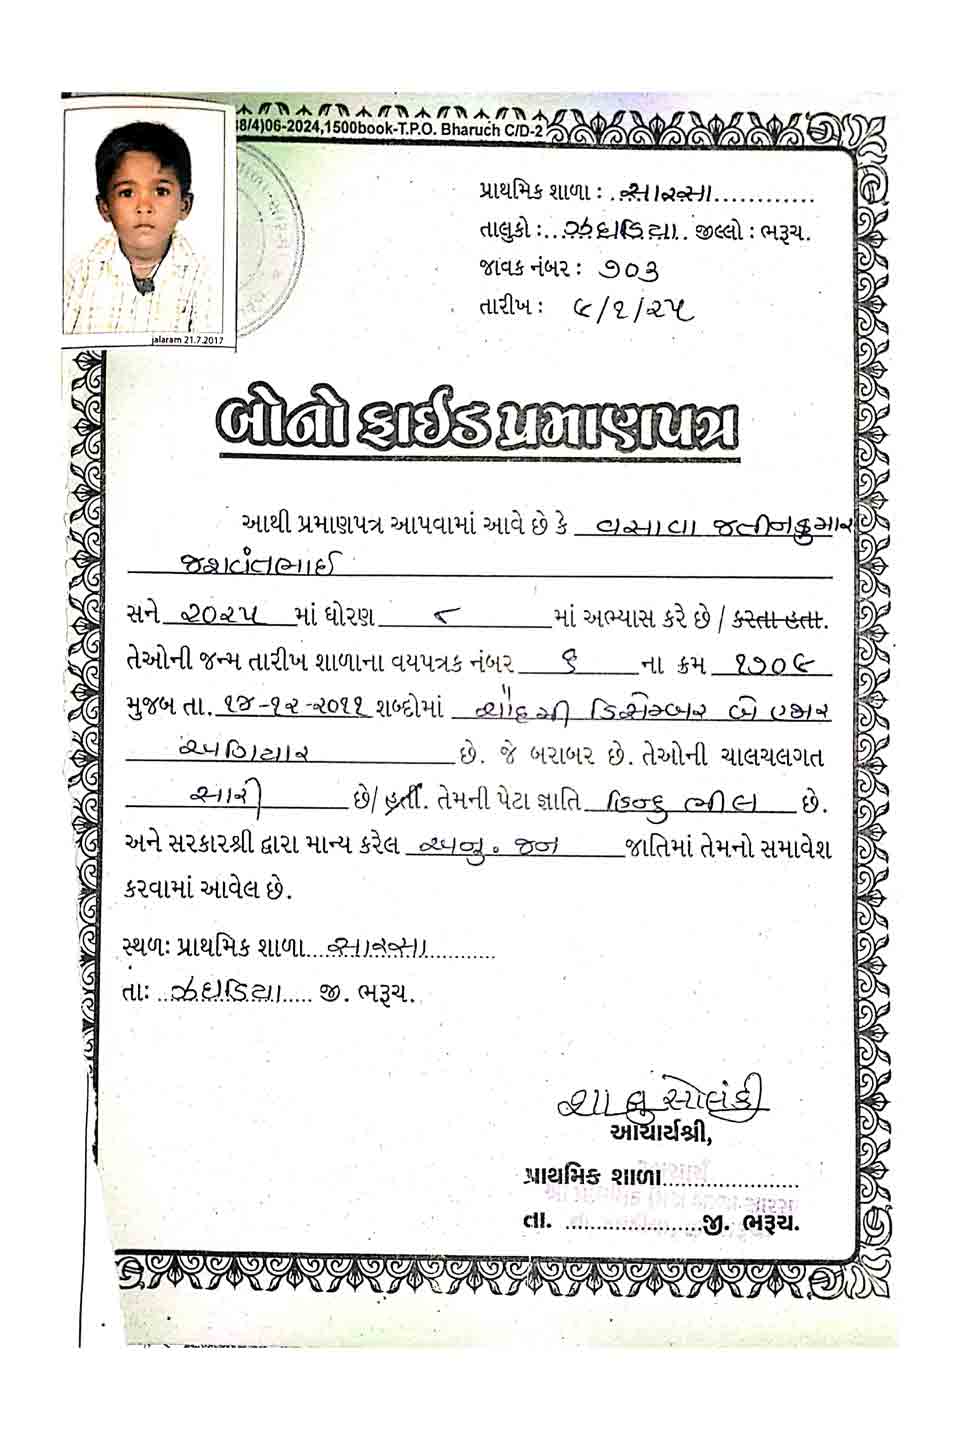 38/4)06-2024,1500book-T.P.O. Bharuch C/D-2
પ્રાથમિક શાળા : ..સારસા............
તાલુકો :...ઝઘડિયા.. જીલ્લો : ભરૂચ.
જાવક નંબર : ૭૦૩
તારીખ : ૯/૧/૨૫
jalaram 21.7.2017
બોનો ફાઈડ પ્રમાણપત્ર
આથી પ્રમાણપત્ર આપવામાં આવે છે કે વસાવા જતીનકુમાર
જશવંતભાઈ
સને ૨૦૨૫ માં ધોરણ ૮ માં અભ્યાસ કરે છે / કરતા હતા.
તેઓની જન્મ તારીખ શાળાના વયપત્રક નંબર ૬ ના ક્રમ ૧૭૦૯
મુજબ તા. ૧૪-૧૨-૨૦૧૧ શબ્દોમાં ચૌદમી ડિસેમ્બર બે હજાર
અગિયાર છે. જે બરાબર છે. તેઓની ચાલચલગત
સારી છે/ હતી. તેમની પેટા જ્ઞાતિ હિન્દુ ભીલ છે.
અને સરકારશ્રી દ્વારા માન્ય કરેલ અનુ. જન જાતિમાં તેમનો સમાવેશ
કરવામાં આવેલ છે.
સ્થળઃ પ્રાથમિક શાળા....સારસા............
તાઃ ..ઝઘડિયા..... જી. ભરૂચ.
શાલુ સોલંકી
આચાર્યશ્રી,
પ્રાથમિક શાળા......................
તા. ......................જી. ભરૂચ.